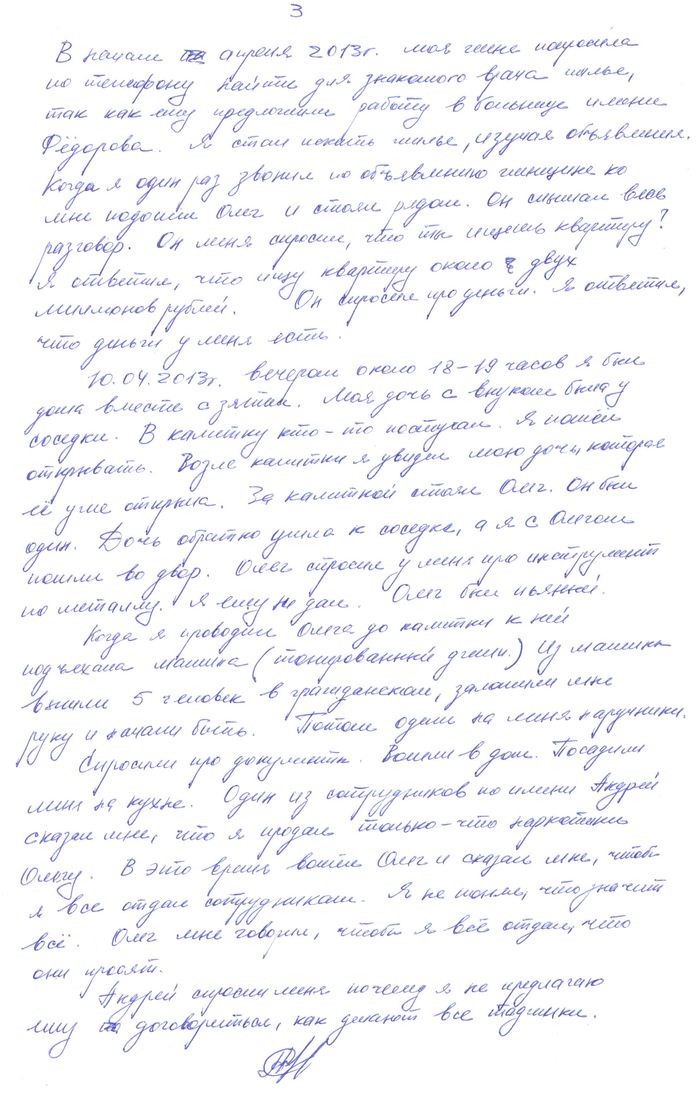 3
В начале апреля 2013г. моя жена попросила
по телефону найти для знакомого врача жилье,
так как ему предложили работу в больнице имени
Фёдорова. Я стал искать жилье, изучая объявления.
Когда я один раз звонил по объявлению женщине ко
мне подошел Олег и стоял рядом. Он слышал весь
разговор. Он меня спросил, что ты ищешь квартиру?
Я ответил, что ищу квартиру около двух
миллионов рублей. Он спросил про деньги. Я ответил,
что деньги у меня есть.
10.04.2013г. вечером около 18-19 часов я был
дома вместе с зятем. Моя дочь с внуком была у
соседки. В калитку кто-то постучал. Я пошёл
открывать. Возле калитки я увидел мою дочь, которая
её уже открыла. За калиткой стоял Олег. Он был
один. Дочь обратно ушла к соседке, а я с Олегом
пошли во двор. Олег спросил у меня про инструмент
по металлу. Я ему не дал. Олег был пьяный.
Когда я проводил Олега до калитки к ней
подъехала машина (тонированный джип.) Из машины
вышли 5 человек в гражданском, заломили мне
руку и начали бить. Потом одели на меня наручники.
Спросили про документы. Вошли в дом. Посадили
меня на кухне. Один из сотрудников по имени Андрей
сказал мне, что я продал только-что наркотики
Олегу. В это время вошел Олег и сказал мне, чтобы
я все отдал сотрудникам. Я не понял, что значит
всё. Олег мне говорил, чтобы я всё отдал, что
они просят.
Андрей спросил меня почему я не предлагаю
ему договориться, как делают все таджики.